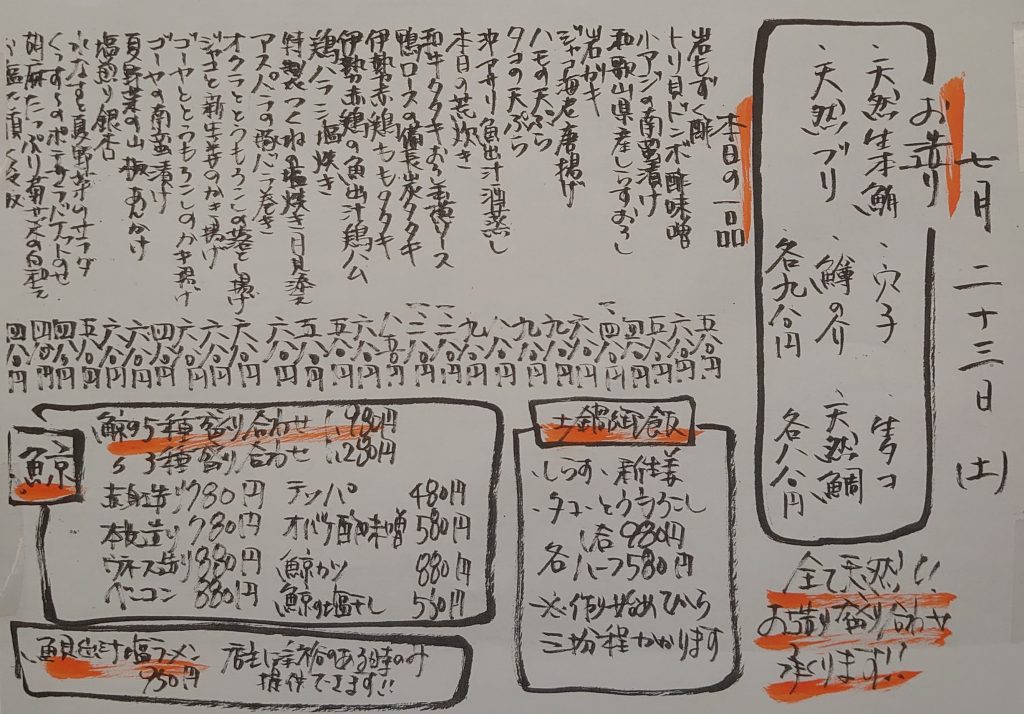 七月二十三日(土)
お造り
・天然生本鮪 ・穴子 ・生タコ
・天然ブリ ・鱒の介 ・天然鯛
各九八〇円 各八八〇円
全て天然!!
お造り盛り合わせ
承ります!!
本日の一品
岩もずく酢 五八〇円
トリ貝ドンボ酢味噌 六八〇円
小アジの南蛮漬け 五八〇円
和歌山県産しらすおろし 四八〇円
岩ガキ
ジャコ海老唐揚げ 六八〇円
ハモの天ぷら 九八〇円
タコの天ぷら 九八〇円
沖アサリ魚出汁酒蒸し 八八〇円
本日の荒炊き 九八〇円
和牛タタキおろし
鴨ロースの備長炭タタキ
伊勢赤鶏ももタタキ
伊勢赤鶏の魚出汁鶏ハム
鶏ハラミ塩焼き 五八〇円
特製つくねの塩焼き月見添え
アスパラの豚バラ巻き 六八〇円
オクラととうもろこしの落とし揚げ 六八〇円
ジャコと新生姜のかき揚げ 六八〇円
ゴーヤととうもろこしのかき揚げ 六八〇円
ゴーヤの南蛮漬け 四八〇円
夏野菜の山椒あんかけ 六八〇円
塩煎り銀杏 五八〇円
水なすと夏野菜のサラダ
くんすーのポテサラバゲットのせ
胡麻たっぷり
土鍋御飯
・しらす・新生姜
・タコ・とうもろこし
各 一合980円
ハーフ580円
※作り始めてから
三十分程かかります
鯨
鯨の5種盛り合わせ 1,980円
〃3種盛り合わせ 1,280円
赤身造り 780円 テッパ 480円
本皮造り 780円 オバケ酢味噌 580円
ウネス造り 880円 鯨カツ 880円
ベーコン 880円 鯨の塩干し 580円
魚貝だけ塩ラメン 950円
店主に余裕のある時のみ
提供できます!!